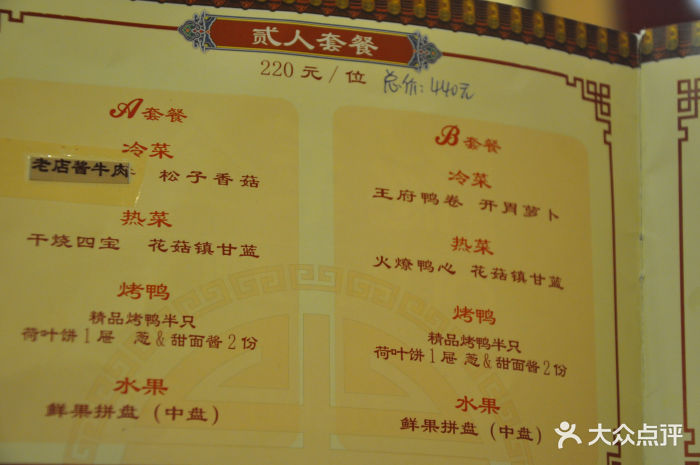 贰人套餐
220 元 / 位 总价：440元
A 套餐
冷菜
老店酱牛肉 松子香菇
热菜
干烧四宝 花菇镇甘蓝
烤鸭
精品烤鸭半只
荷叶饼 1 屉 葱 & 甜面酱 2 份
水果
鲜果拼盘（中盘）
B 套餐
冷菜
王府鸭卷 开胃萝卜
热菜
火燎鸭心 花菇镇甘蓝
烤鸭
精品烤鸭半只
荷叶饼 1 屉 葱 & 甜面酱 2 份
水果
鲜果拼盘（中盘）
大众点评